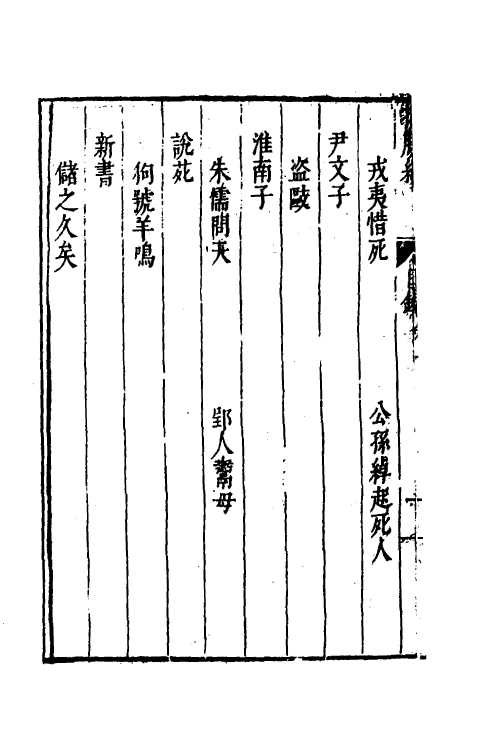 戎夷惜死　公孫綽起死人
尹文子
盗毆
淮南子
朱儒問天　郢人鬻母
說苑
狗號羊鳴
新書
儲之久矣
目錄